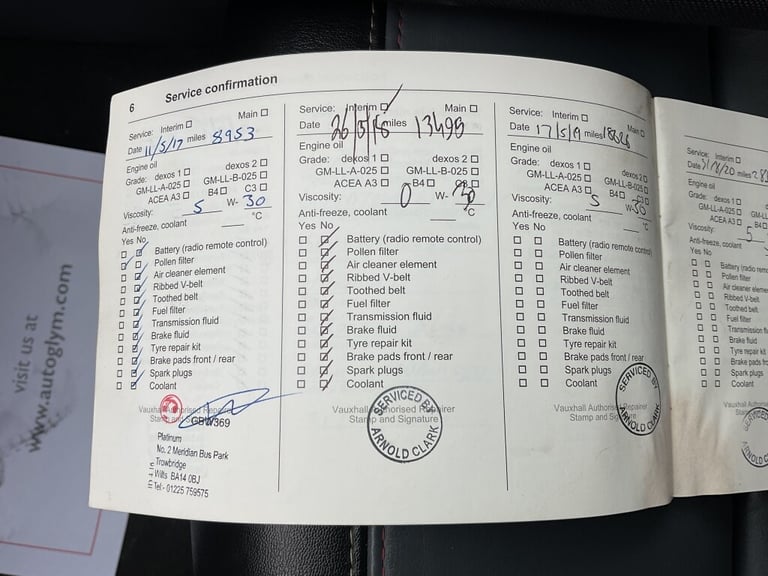 6
Service confirmation
Service: Interim Main
Date 11/5/17 miles 8953
Engine oil
Grade: dexos 1 dexos 2
GM-LL-A-025 GM-LL-B-025
ACEA A3 B4 C3
Viscosity: 5 W- 30
Anti-freeze, coolant °C
Yes No
Battery (radio remote control)
Pollen filter
Air cleaner element
Ribbed V-belt
Toothed belt
Fuel filter
Transmission fluid
Brake fluid
Tyre repair kit
Brake pads front / rear
Spark plugs
Coolant
Vauxhall Authorised Repairer
Stamp and
GBW369
Platinum
No. 2 Meridian Bus Park
Trowbridge
Wilts BA14 0BJ
Tel:- 01225 759575
Service: Interim Main
Date miles
Engine oil
Grade: dexos 1 dexos 2
GM-LL-A-025 GM-LL-B-025
ACEA A3 B4
Viscosity: 0 W- 30
Anti-freeze, coolant °C
Yes No
Battery (radio remote control)
Pollen filter
Air cleaner element
Ribbed V-belt
Toothed belt
Fuel filter
Transmission fluid
Brake fluid
Tyre repair kit
Brake pads front / rear
Spark plugs
Coolant
Vauxhall Authorised Repairer
Stamp and Signature
SERVICED BY
ARNOLD CLARK
Service: Interim Main
Date 17/5/19 miles
Engine oil
Grade: dexos 1 dexos 2
GM-LL-A-025 GM-LL-B-025
ACEA A3 B4 C3
Viscosity: 5 W-30
Anti-freeze, coolant °C
Yes No
Battery (radio remote control)
Pollen filter
Air cleaner element
Ribbed V-belt
Toothed belt
Fuel filter
Transmission fluid
Brake fluid
Tyre repair kit
Brake pads front / rear
Spark plugs
Coolant
Vauxhall Authorised Repairer
Stamp and
SERVICED BY
ARNOLD CLARK
Service: Interim
Date miles
Engine oil
Grade: dexos 1
GM-LL-A-025
ACEA A3
Viscosity: 5
Anti-freeze, coolant
Yes No
Battery (radio remote
Pollen filter
Air cleaner element
Ribbed V-belt
Toothed belt
Fuel filter
Transmission
Brake fluid
Tyre repair kit
Brake pads
Spark plugs
Coolant
Vauxhall
Stamp
visit us at
www.autoglym.com